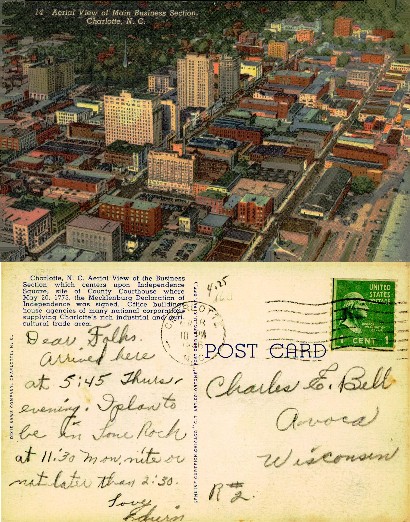 14 Aerial View of Main Business Section,
Charlotte, N. C.
Charlotte, N. C. Aerial View of the Business
Section which centers upon Independence
Square, site of County Courthouse where
May 20, 1775, the Mecklenburg Declaration of
Independence was signed. Office buildings
house agencies of many national corporations
supplying Charlotte's rich industrial and agri-
cultural trade area.
4.25
UNITED STATES
POSTAGE
CENT 1
POST CARD
Dear Folks.
Arrived here
at 5:45 Thurs.
evening. I plan to
be in Lone Rock
at 11:30 Mon. nite or
not later than 2:30.
Love
Charles E. Bell
Avoca
Wisconsin
R#2.